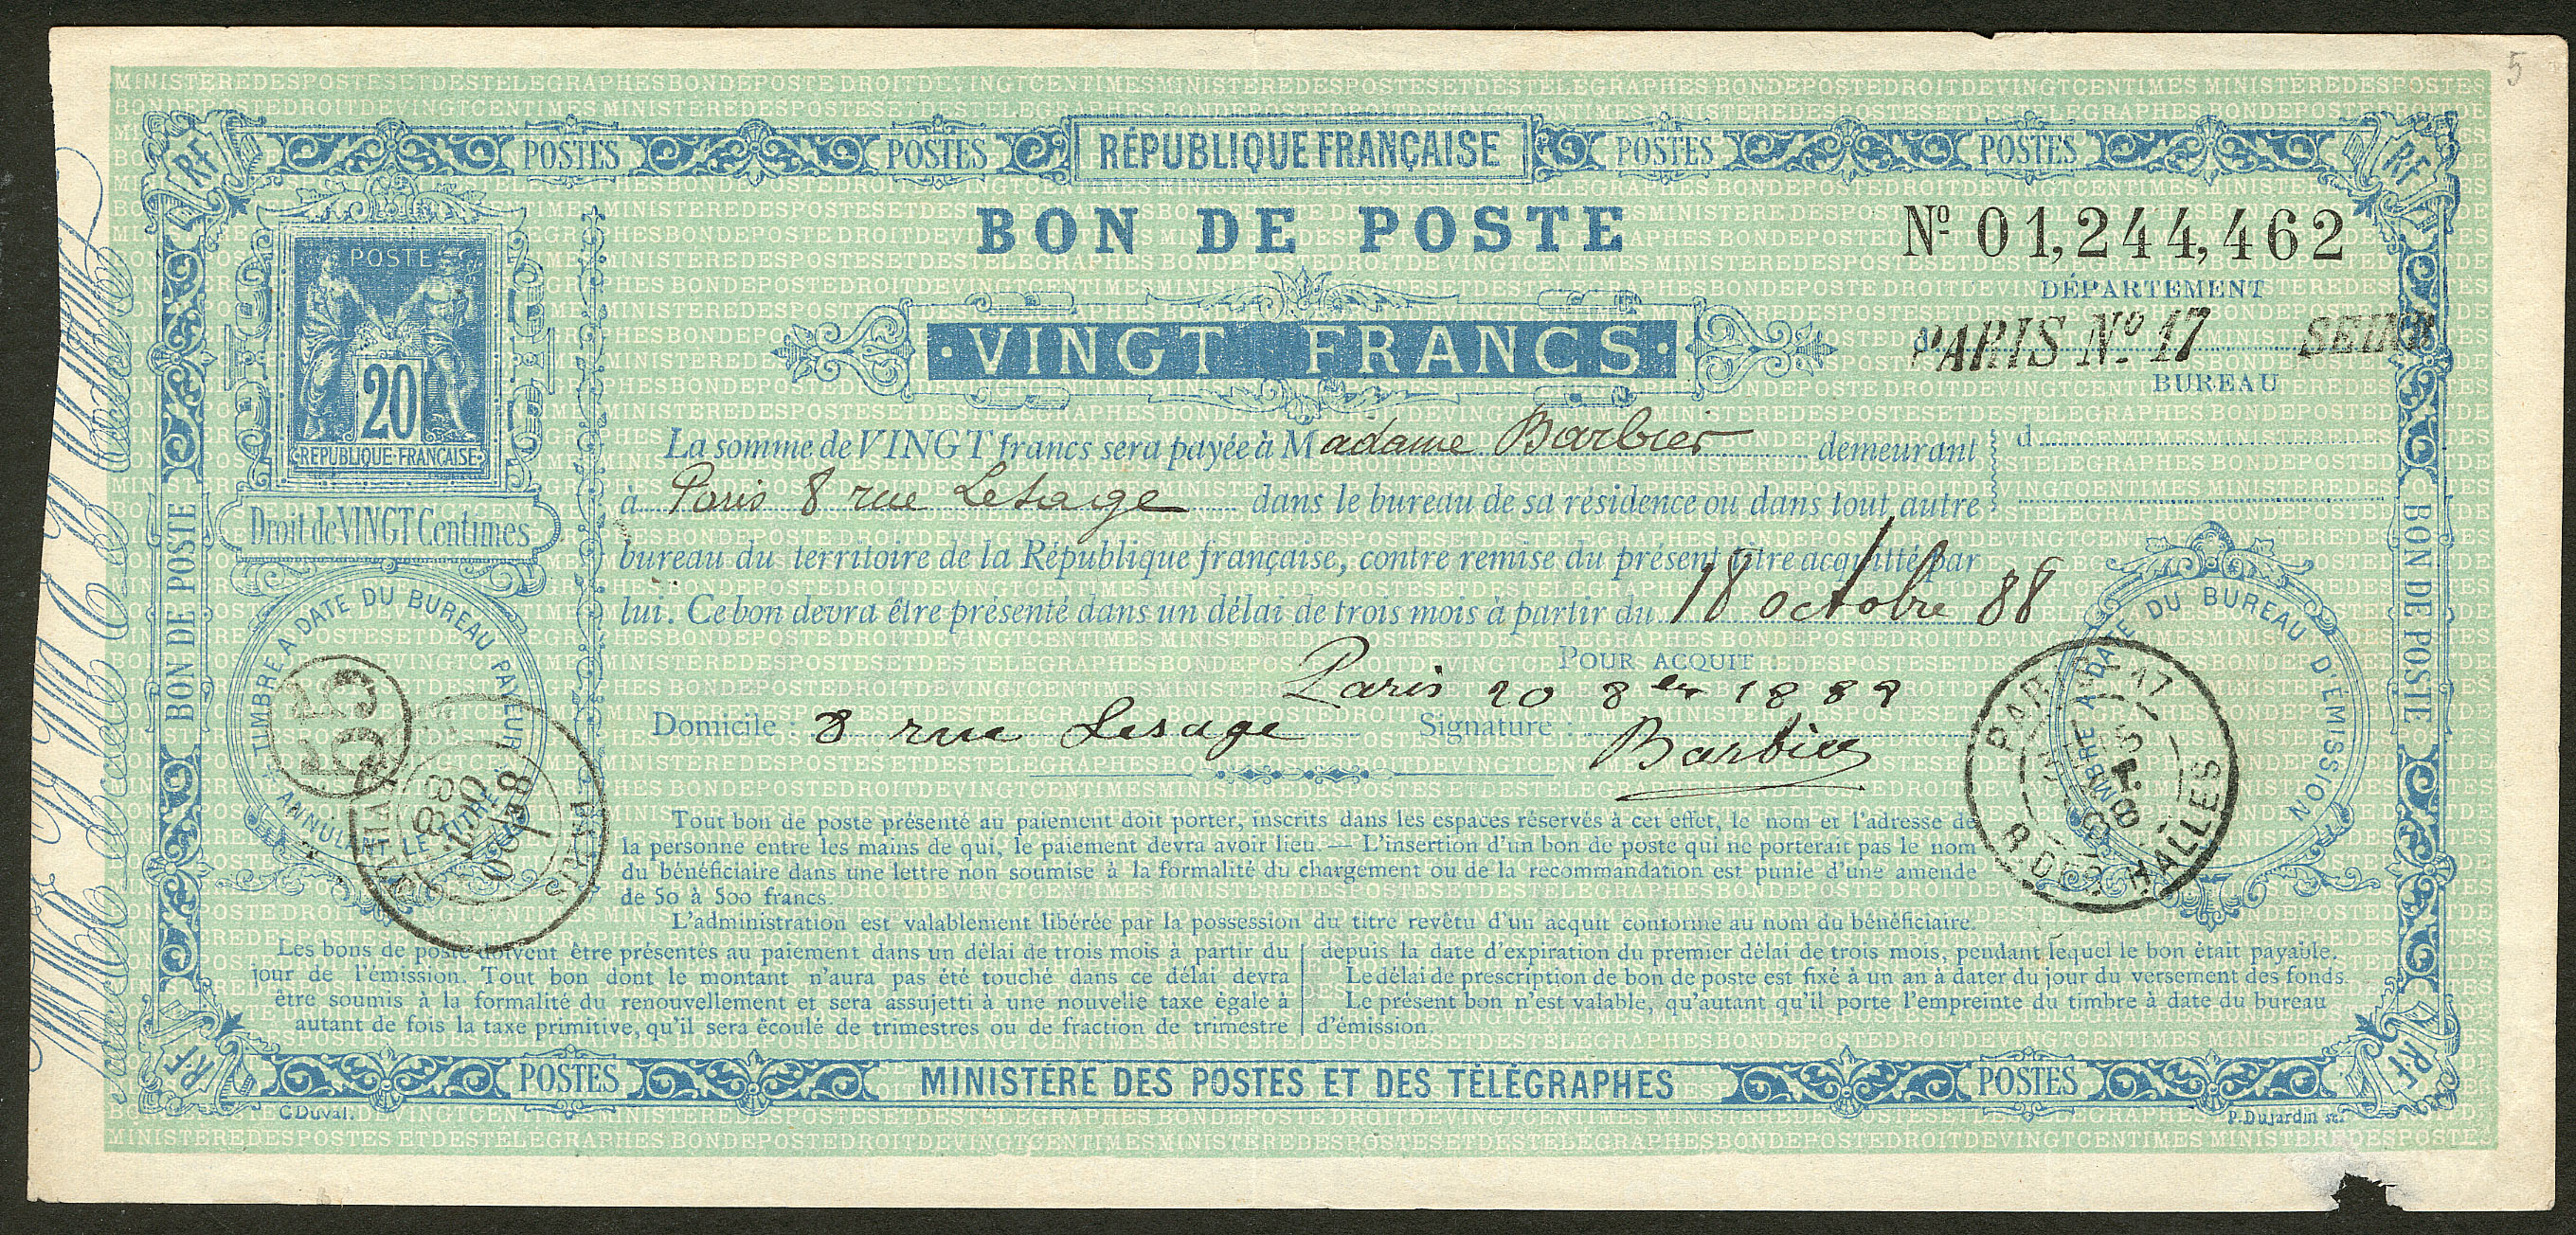 RÉPUBLIQUE FRANÇAISE
POSTES POSTES POSTES POSTES
RF RF
BON DE POSTE
Nº 01,244,462
DÉPARTEMENT
d
PARIS Nº 17 SEINE
BUREAU
d
VINGT FRANCS
POSTE
20
REPUBLIQUE FRANÇAISE
Droit de VINGT Centimes
La somme de VINGT francs sera payée à Madame Barbier demeurant
à Paris 8 rue Lesage dans le bureau de sa résidence ou dans tout autre
bureau du territoire de la République française, contre remise du présent titre acquitté par
lui. Ce bon devra être présenté dans un délai de trois mois à partir du 18 octobre 88
POUR ACQUIT :
Paris 20 8bre 1888
Domicile : 8 rue Lesage Signature : Barbier
TIMBRE A DATE DU BUREAU PAYEUR
ANNULANT LE TITRE
PARIS
8E
OCT.
88
TIMBRE A DATE DU BUREAU D'ÉMISSION
R. DES HALLES
BON DE POSTE
BON DE POSTE
Tout bon de poste présenté au paiement doit porter, inscrits dans les espaces réservés à cet effet, le nom et l'adresse de
la personne entre les mains de qui, le paiement devra avoir lieu. — L'insertion d'un bon de poste qui ne porterait pas le nom
du bénéficiaire dans une lettre non soumise à la formalité du chargement ou de la recommandation est punie d'une amende
de 50 à 500 francs.
L'administration est valablement libérée par la possession du titre revêtu d'un acquit conforme au nom du bénéficiaire.
Les bons de poste doivent être présentés au paiement dans un délai de trois mois à partir du
jour de l'émission. Tout bon dont le montant n'aura pas été touché dans ce délai devra
être soumis à la formalité du renouvellement et sera assujetti à une nouvelle taxe égale à
autant de fois la taxe primitive, qu'il sera écoulé de trimestres ou de fraction de trimestre
depuis la date d'expiration du premier délai de trois mois, pendant lequel le bon était payable.
Le délai de prescription de bon de poste est fixé à un an à dater du jour du versement des fonds.
Le présent bon n'est valable, qu'autant qu'il porte l'empreinte du timbre à date du bureau
d'émission.
RF RF
POSTES MINISTÈRE DES POSTES ET DES TÉLÉGRAPHES POSTES
C. Duval. P. Dujardin sc.
5